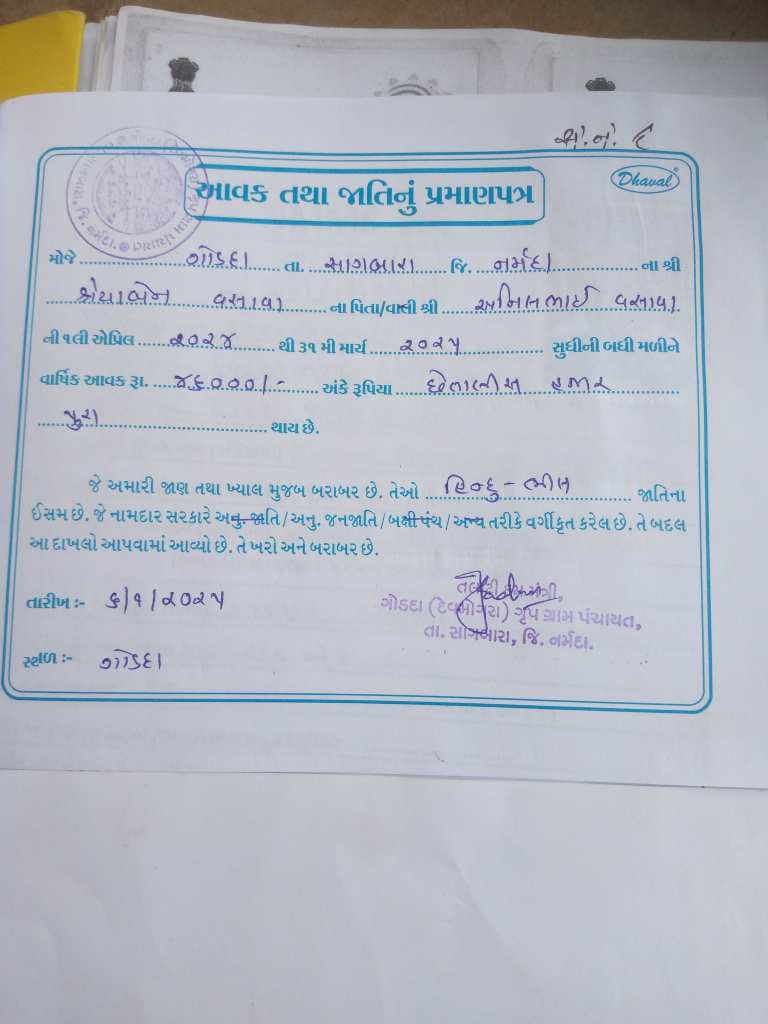 અ.નં. ૬
આવક તથા જાતિનું પ્રમાણપત્ર
Dhaval
મોજે ગોડદા તા. સાગબારા જિ. નર્મદા ના શ્રી
શ્રેયાબેન વસાવા ના પિતા/વાલી શ્રી અનિલભાઈ વસાવા
ની ૧લી એપ્રિલ ૨૦૨૪ થી ૩૧ મી માર્ચ ૨૦૨૫ સુધીની બધી મળીને
વાર્ષિક આવક રૂા. ૪૬૦૦૦/- અંકે રૂપિયા છેતાલીસ હજાર
પુરા થાય છે.
જે અમારી જાણ તથા ખ્યાલ મુજબ બરાબર છે. તેઓ હિન્દુ - ભીલ જાતિના
ઈસમ છે. જે નામદાર સરકારે અનુ. જાતિ/અનુ. જનજાતિ/બક્ષીપંચ/અન્ય તરીકે વર્ગીકૃત કરેલ છે. તે બદલ
આ દાખલો આપવામાં આવ્યો છે. તે ખરો અને બરાબર છે.
તારીખ :- ૬/૧/૨૦૨૫
સ્થળ :- ગોડદા
ગોડદા (દેવમોગરા) ગૃપ ગ્રામ પંચાયત,
તા. સાગબારા, જિ. નર્મદા.